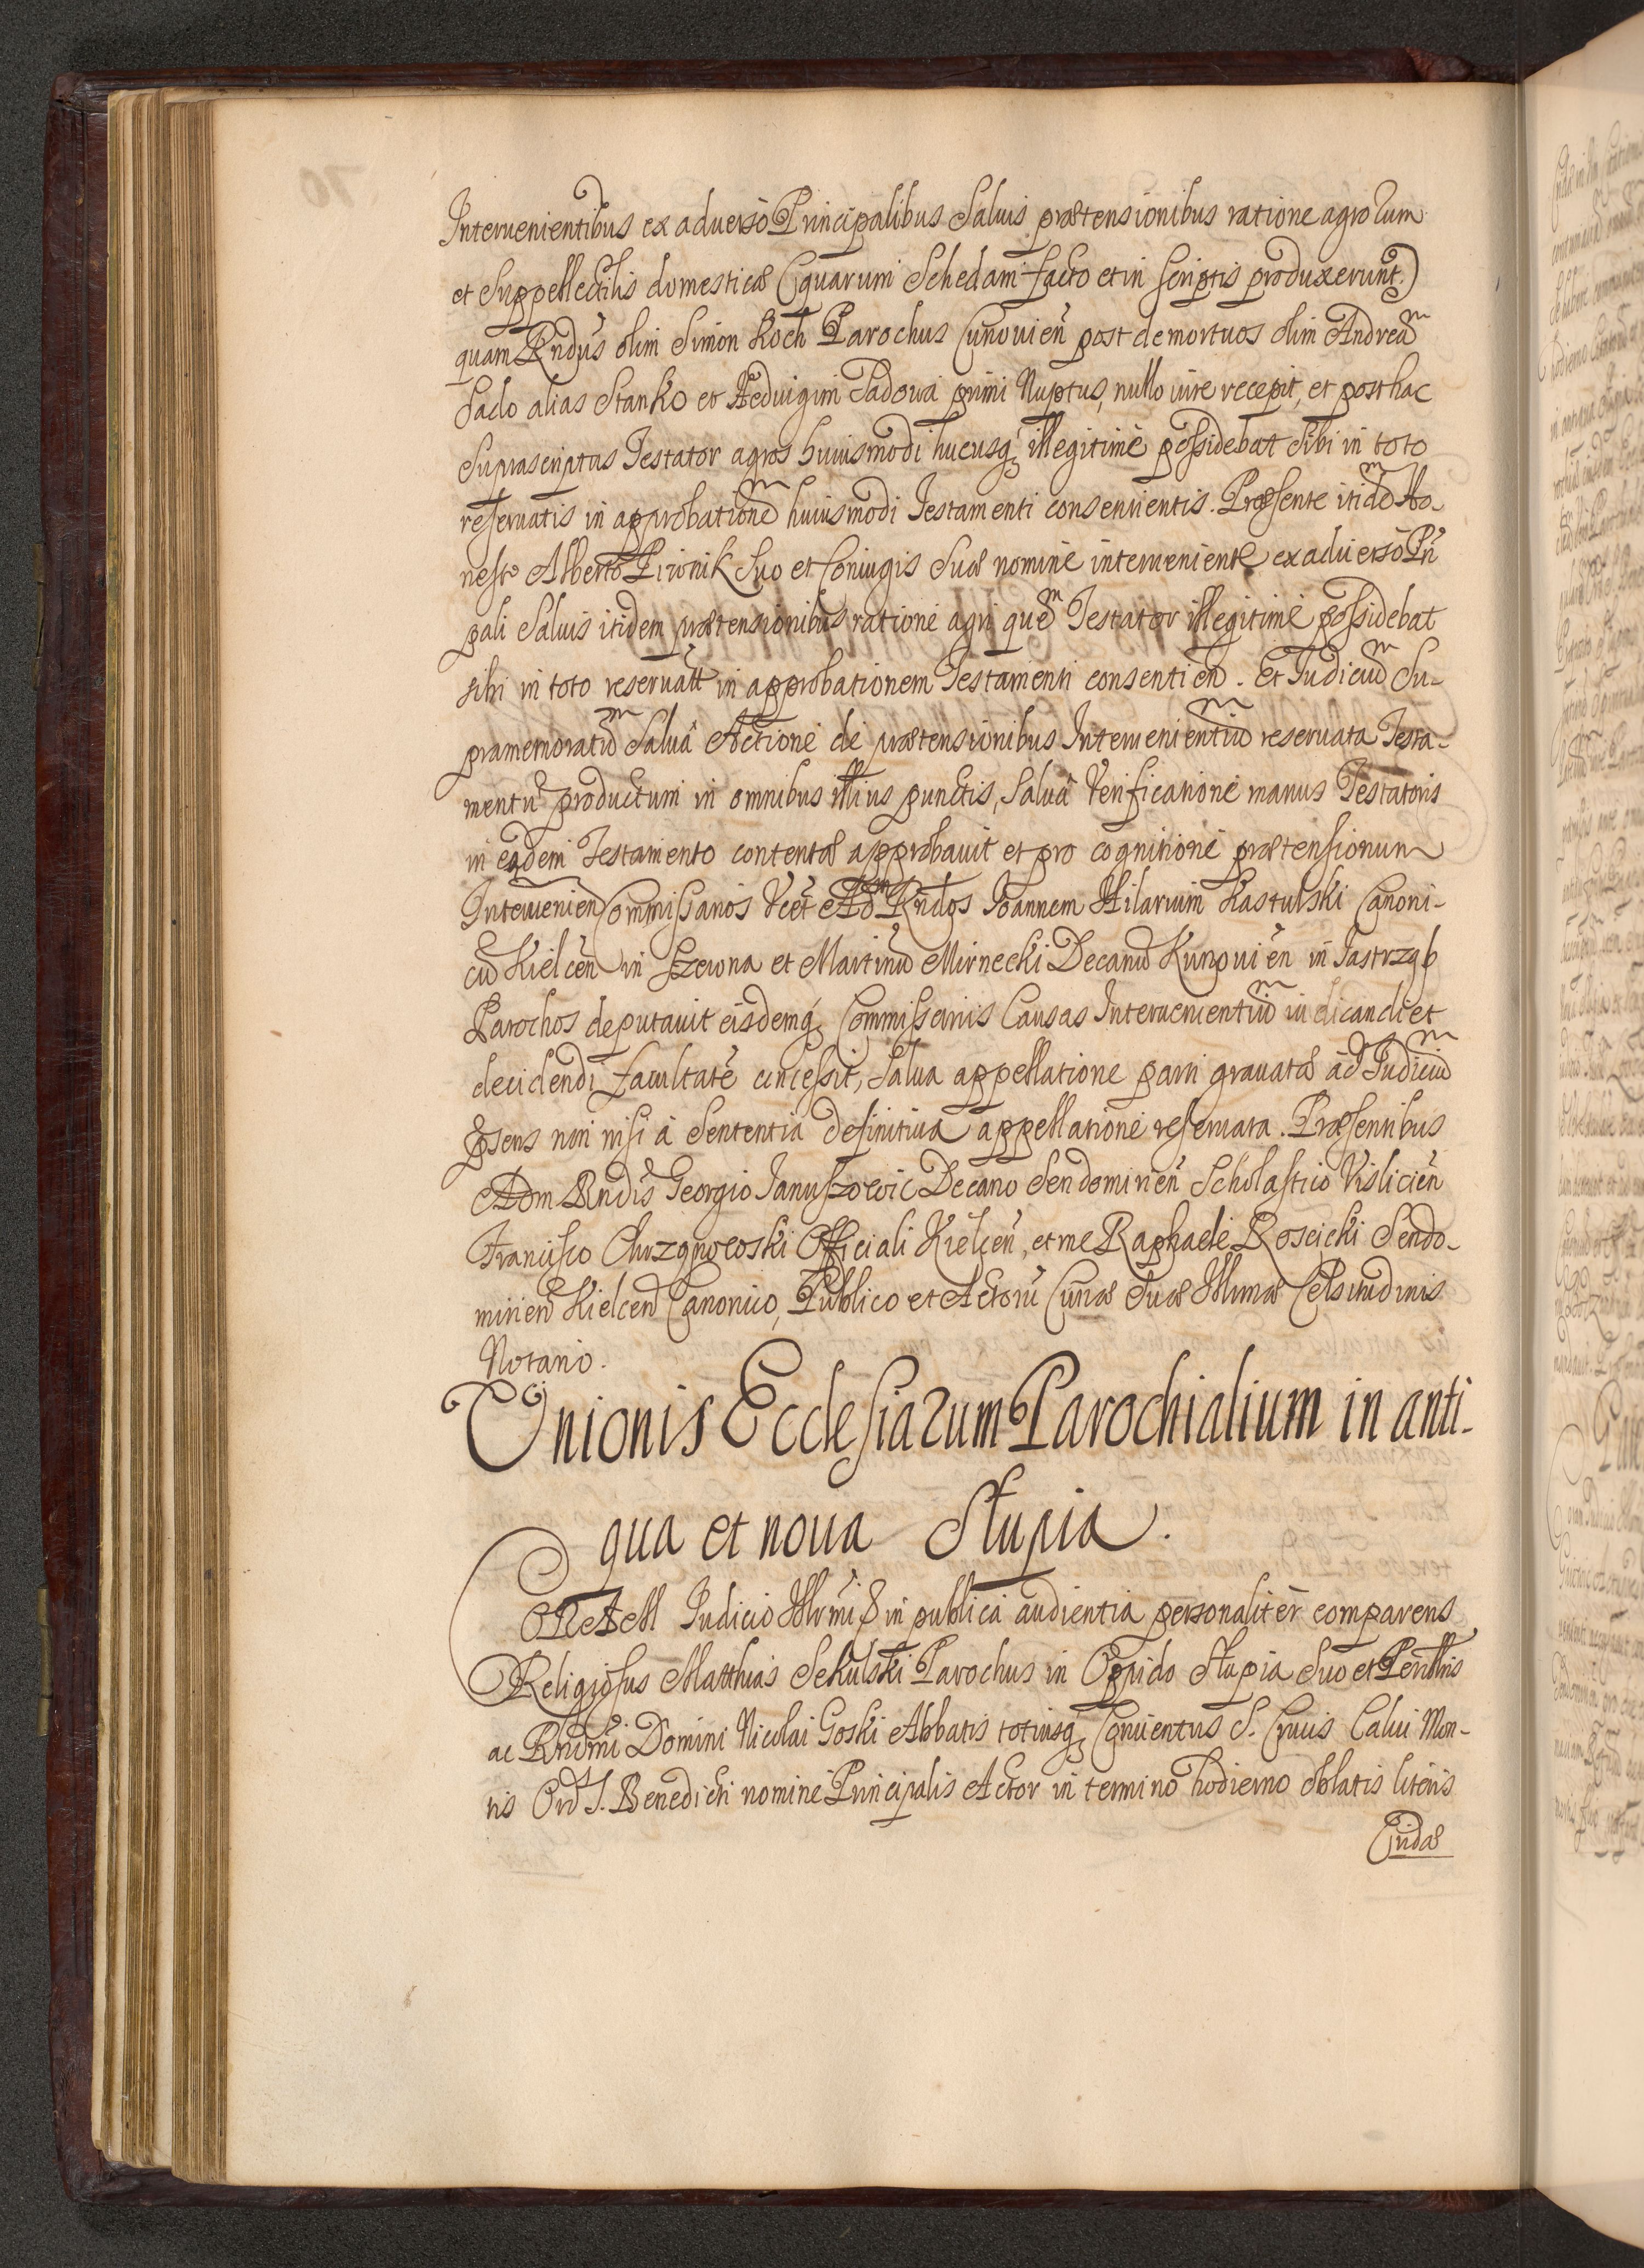 Interuenientibus ex aduerso Principalibus Saluis prætensionibus ratione agrorum
et Suppellectilis domesticæ (quarum Schedam facto et in scriptis produxerunt.)
quam Rndus olim Simon Koch Parochus Cunouien̄ post demortuos olim Andreā
Sado alias Stanko et Heduigim Sadowa primi Nuptus, nullo iure recepit, et post hac
Suprascriptus Testator agros huiusmodi hucusq; illegitimè possidebat Sibi in toto
reseruatis in approbationē huiusmodi Testamenti consentientis. Præsente itidē Ho-
nesto Alberto Piwnik Suo et Coniugis Suæ nomine interueniente ex aduerso Pñ
pali Saluis itidem prætensionibus ratione agri quē Testator illegitimè possidebat
sibi in toto reseruatt in approbationem Testamenti consentien̄. Et Iudiciū Su-
pramemoratū Saluâ Actione de prætensionibus Interuenientiū reseruata Testa-
mentū productum in omnibus illius punctis, Saluâ Verificatione manus Testatoris
in eodem Testamento contentæ approbauit et pro cognitione prætensionum
Interuenien Commissarios Vēēt Adm Rndos Ioannem Hilarium Kastulski Canoni-
cū Kielcen̄ in Szewna et Martinū Mirnecki Decanū Kunouien̄ in Iastrząb
Parochos deputauit eisdemq; Commissariis Causas Interuenientiū iudicandi et
decidendi facultatē concessit, Salua appellatione parti grauatæ ad Iudiciū
p̄sens non nisi à Sententia definitiua appellatione reseruata. Præsentibus
Adm Rndis Georgio Ianuszowic Decano Sendomirien̄ Scholastico Vislicien̄
Francisco Chrząnowski Officiali Kielcen̄, et me Raphaele Roscicki Sendo-
mirien̄ Kielcen̄ Canonico, Publico et Actorū Curiæ Suæ Illmæ Celsitudinis
Notario.
Vnionis Ecclesiarum Parochialium in anti-
qua et noua Stupia.
CORAM Iudicio Illrmi in publica audientia personalitèr comparens
Religiosus Matthias Sekulski Parochus in Oppido Stupia Suo et Perillris
ac Rndmi Domini Nicolai Goski Abbatis totiusq; Conuentus S. Crucis Calui Mon-
tis Ord S. Benedicti nomine Principalis Actor in termino hodierno oblatis literis
Cridæ